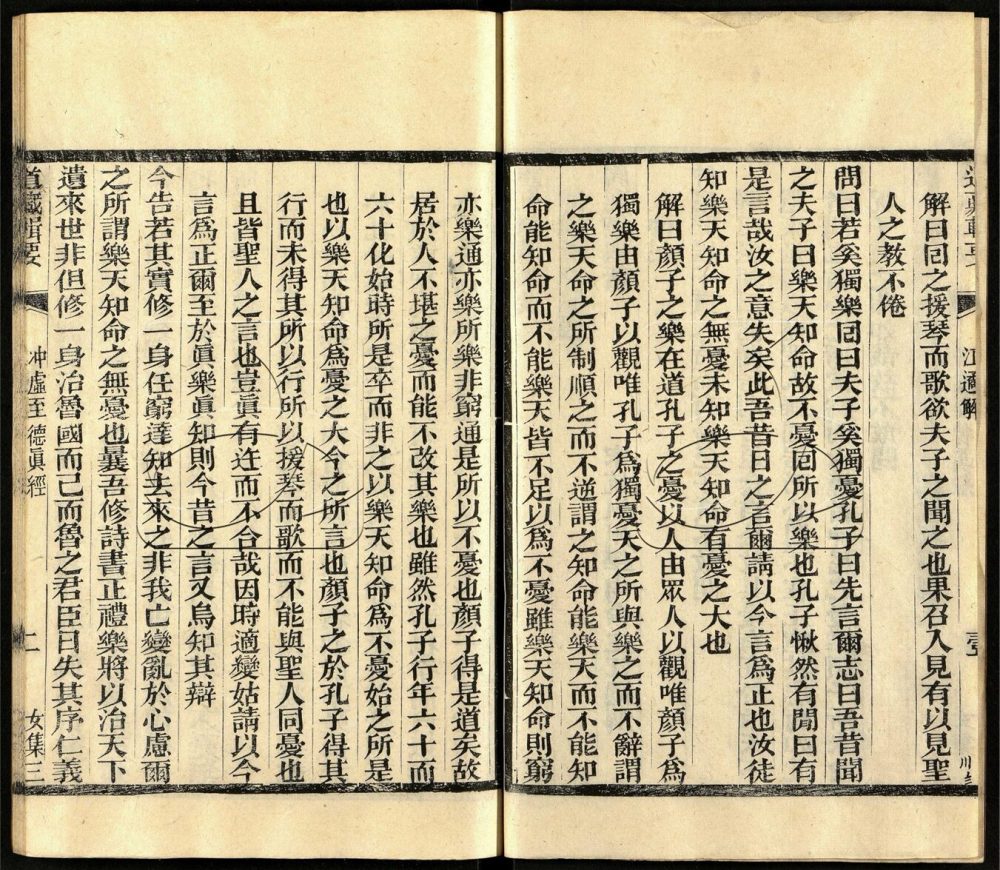 解曰回之援琴而歌欲夫子之聞之也果召入見有以見聖
人之教不倦
問曰若奚獨樂回曰夫子奚獨憂孔子曰先言爾志曰吾昔聞
之夫子曰樂天知命故不憂回所以樂也孔子愀然有閒曰有
是言哉汝之意失矣此吾昔日之言爾請以今言為正也汝徒
知樂天知命之無憂未知樂天知命有憂之大也
解曰顏子之樂在道孔子之憂以人由眾人以觀唯顏子為
獨樂由顏子以觀唯孔子為獨憂天之所與樂之而不辭謂
之樂天命之所制順之而不逆謂之知命能樂天而不能知
命能知命而不能樂天皆不足以為不憂雖樂天知命則窮
亦樂通亦樂所樂非窮通是所以不憂也顏子得是道矣故
居於人不堪之憂而能不改其樂也雖然孔子行年六十而
六十化始時所是卒而非之以樂天知命為不憂始之所是
也以樂天知命為憂之大今之所言也顏子之於孔子得其
行而未得其所以行所以援琴而歌而不能與聖人同憂也
且皆聖人之言也豈眞有迕而不合哉因時適變姑請以今
言為正爾至於眞樂眞知則今昔之言又烏知其辯
今告若其實修一身任窮達知去來之非我亡變亂於心慮爾
之所謂樂天知命之無憂也曩吾修詩書正禮樂將以治天下
遺來世非但修一身治魯國而已而魯之君臣日失其序仁義
道藏輯要
冲虛至德眞經
女集三